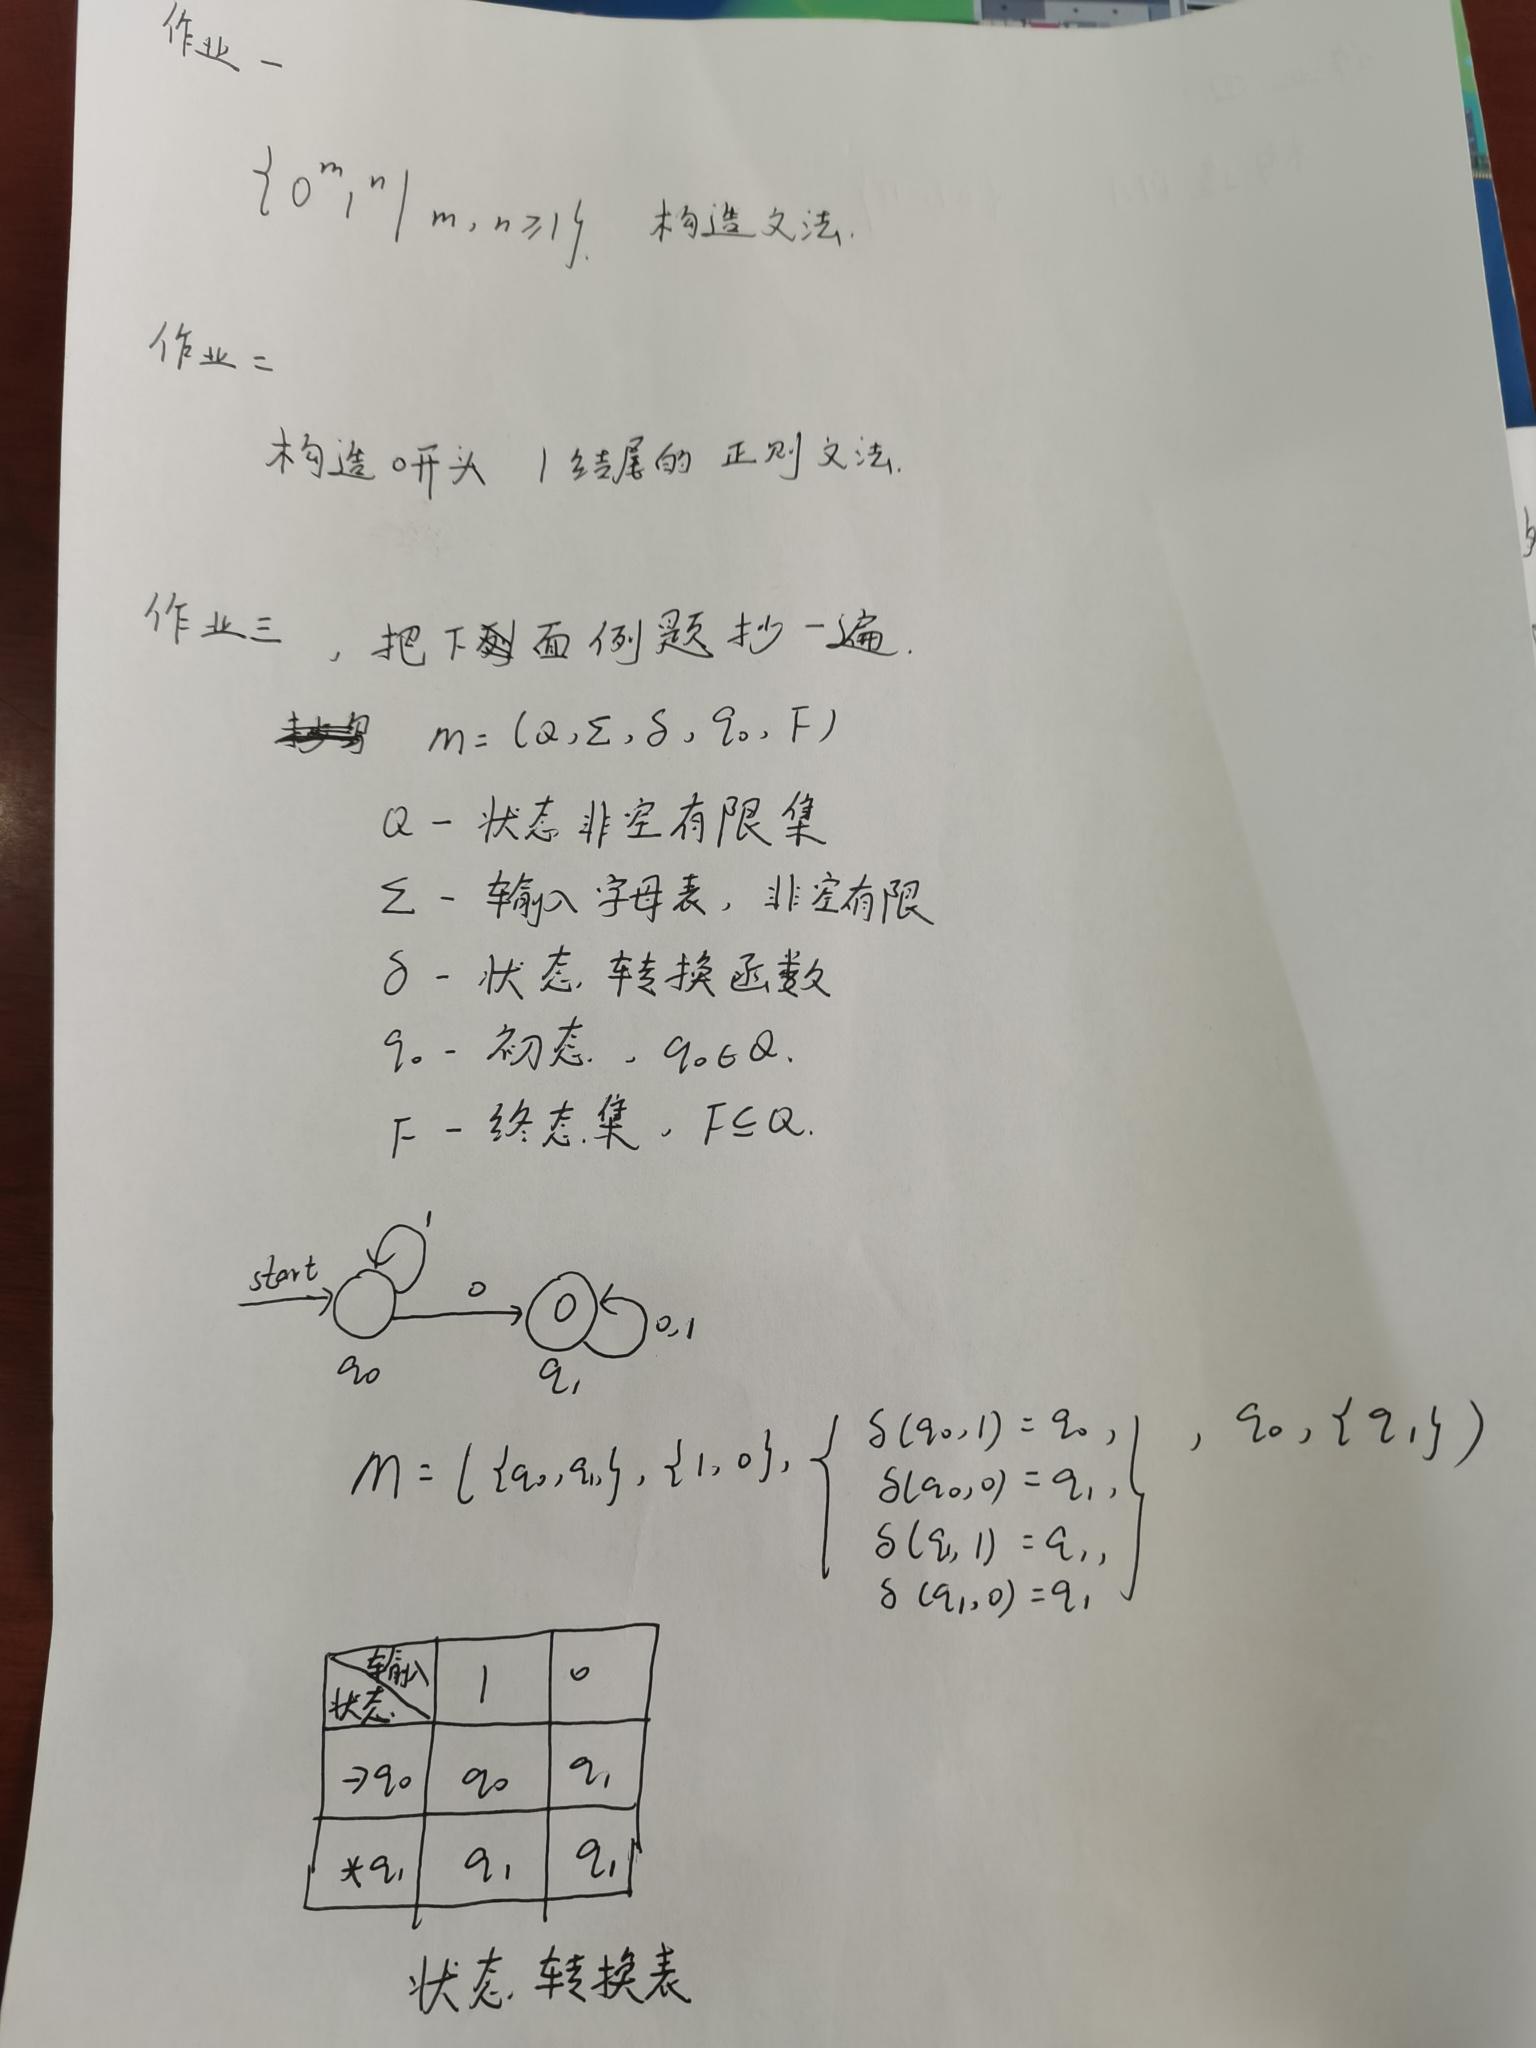 作业一
{0^m 1^n | m, n≥1}. 构造文法.
作业二
构造0开头 1结尾的 正则文法.
作业三, 把下面例题抄一遍.
M = (Q, Σ, δ, q₀, F)
Q - 状态非空有限集
Σ - 输入字母表, 非空有限
δ - 状态转换函数
q₀ - 初态, q₀∈Q.
F - 终态集, F⊆Q.
1
start 0
0,1
q₀ q₁
M = ({q₀,q₁}, {1,0}, { δ(q₀,1) = q₀, }, q₀, {q₁})
δ(q₀,0) = q₁,
δ(q₁,1) = q₁,
δ(q₁,0) = q₁
输入 1 0
状态
→q₀ q₀ q₁
*q₁ q₁ q₁
状态转换表